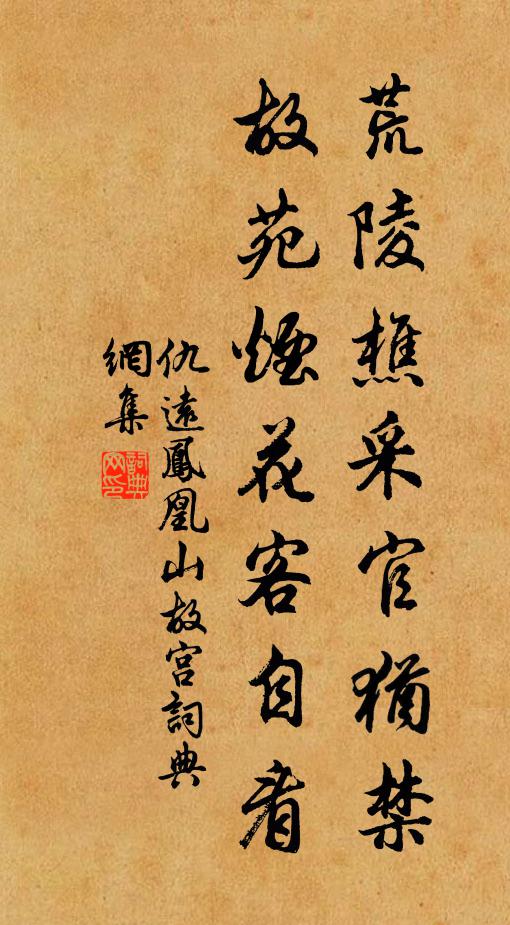 荒陵樵采官猶禁
故苑煙花客自看
仇遠鳳凰山故宮詞典
網集
詞典網印